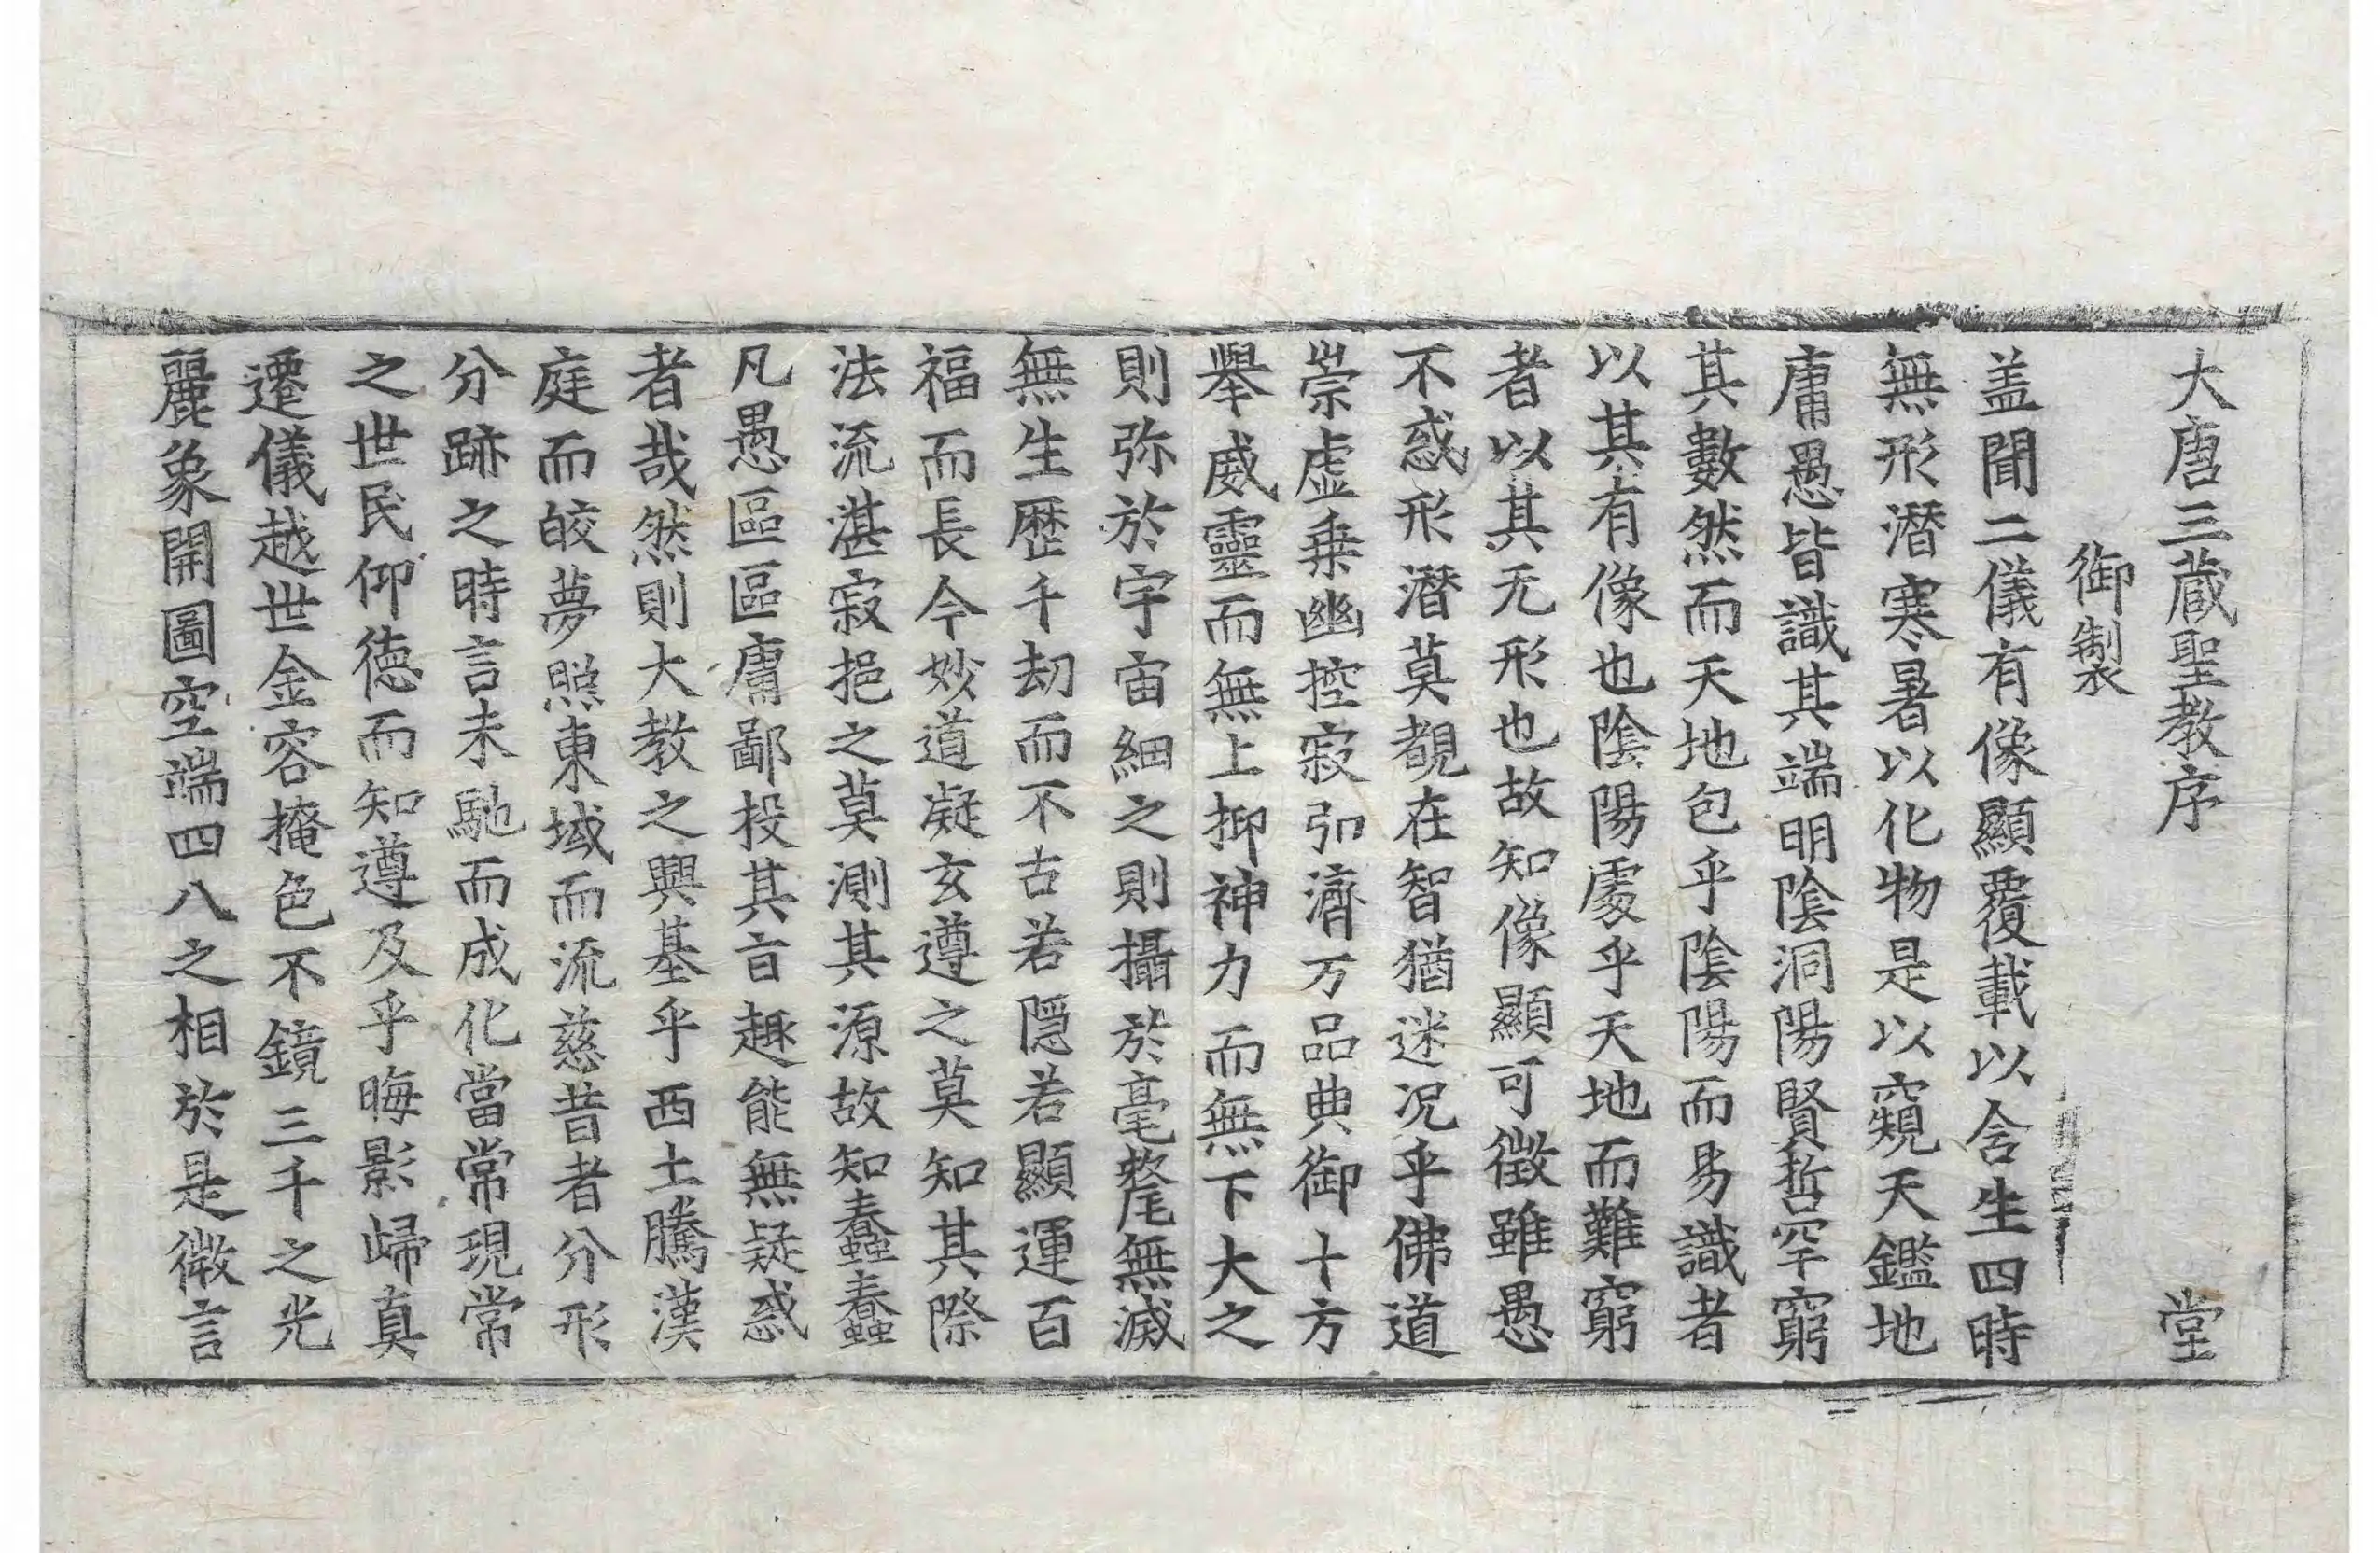 大唐三蔵聖教序 堂
御製
盖聞二儀有像顯覆載以含生四時
無形潛寒暑以化物是以窺天鑑地
庸愚皆識其端明陰洞陽賢哲罕窮
其數然而天地包乎陰陽而易識者
以其有像也陰陽處乎天地而難窮
者以其无形也故知像顯可徵雖愚
不惑形潛莫覩在智猶迷况乎佛道
崇虛乗幽控寂引濟万品典御十方
舉威靈而無上抑神力而無下大之
則弥於宇宙細之則攝於毫氂無滅
無生歷千劫而不古若隱若顯運百
福而長今妙道凝玄遵之莫知其際
法流湛寂挹之莫測其源故知蠢蠢
凡愚區區庸鄙投其旨趣能無疑惑
者哉然則大教之興基乎西土騰漢
庭而皎夢照東域而流慈昔者分形
分跡之時言未馳而成化當常現常
之世民仰德而知遵及乎晦影歸真
遷儀越世金容掩色不鏡三千之光
麗象開圖空端四八之相於是微言